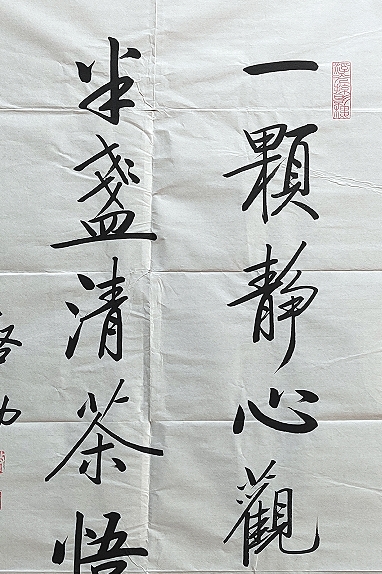 一顆靜心觀
半盞清茶悟
啓功